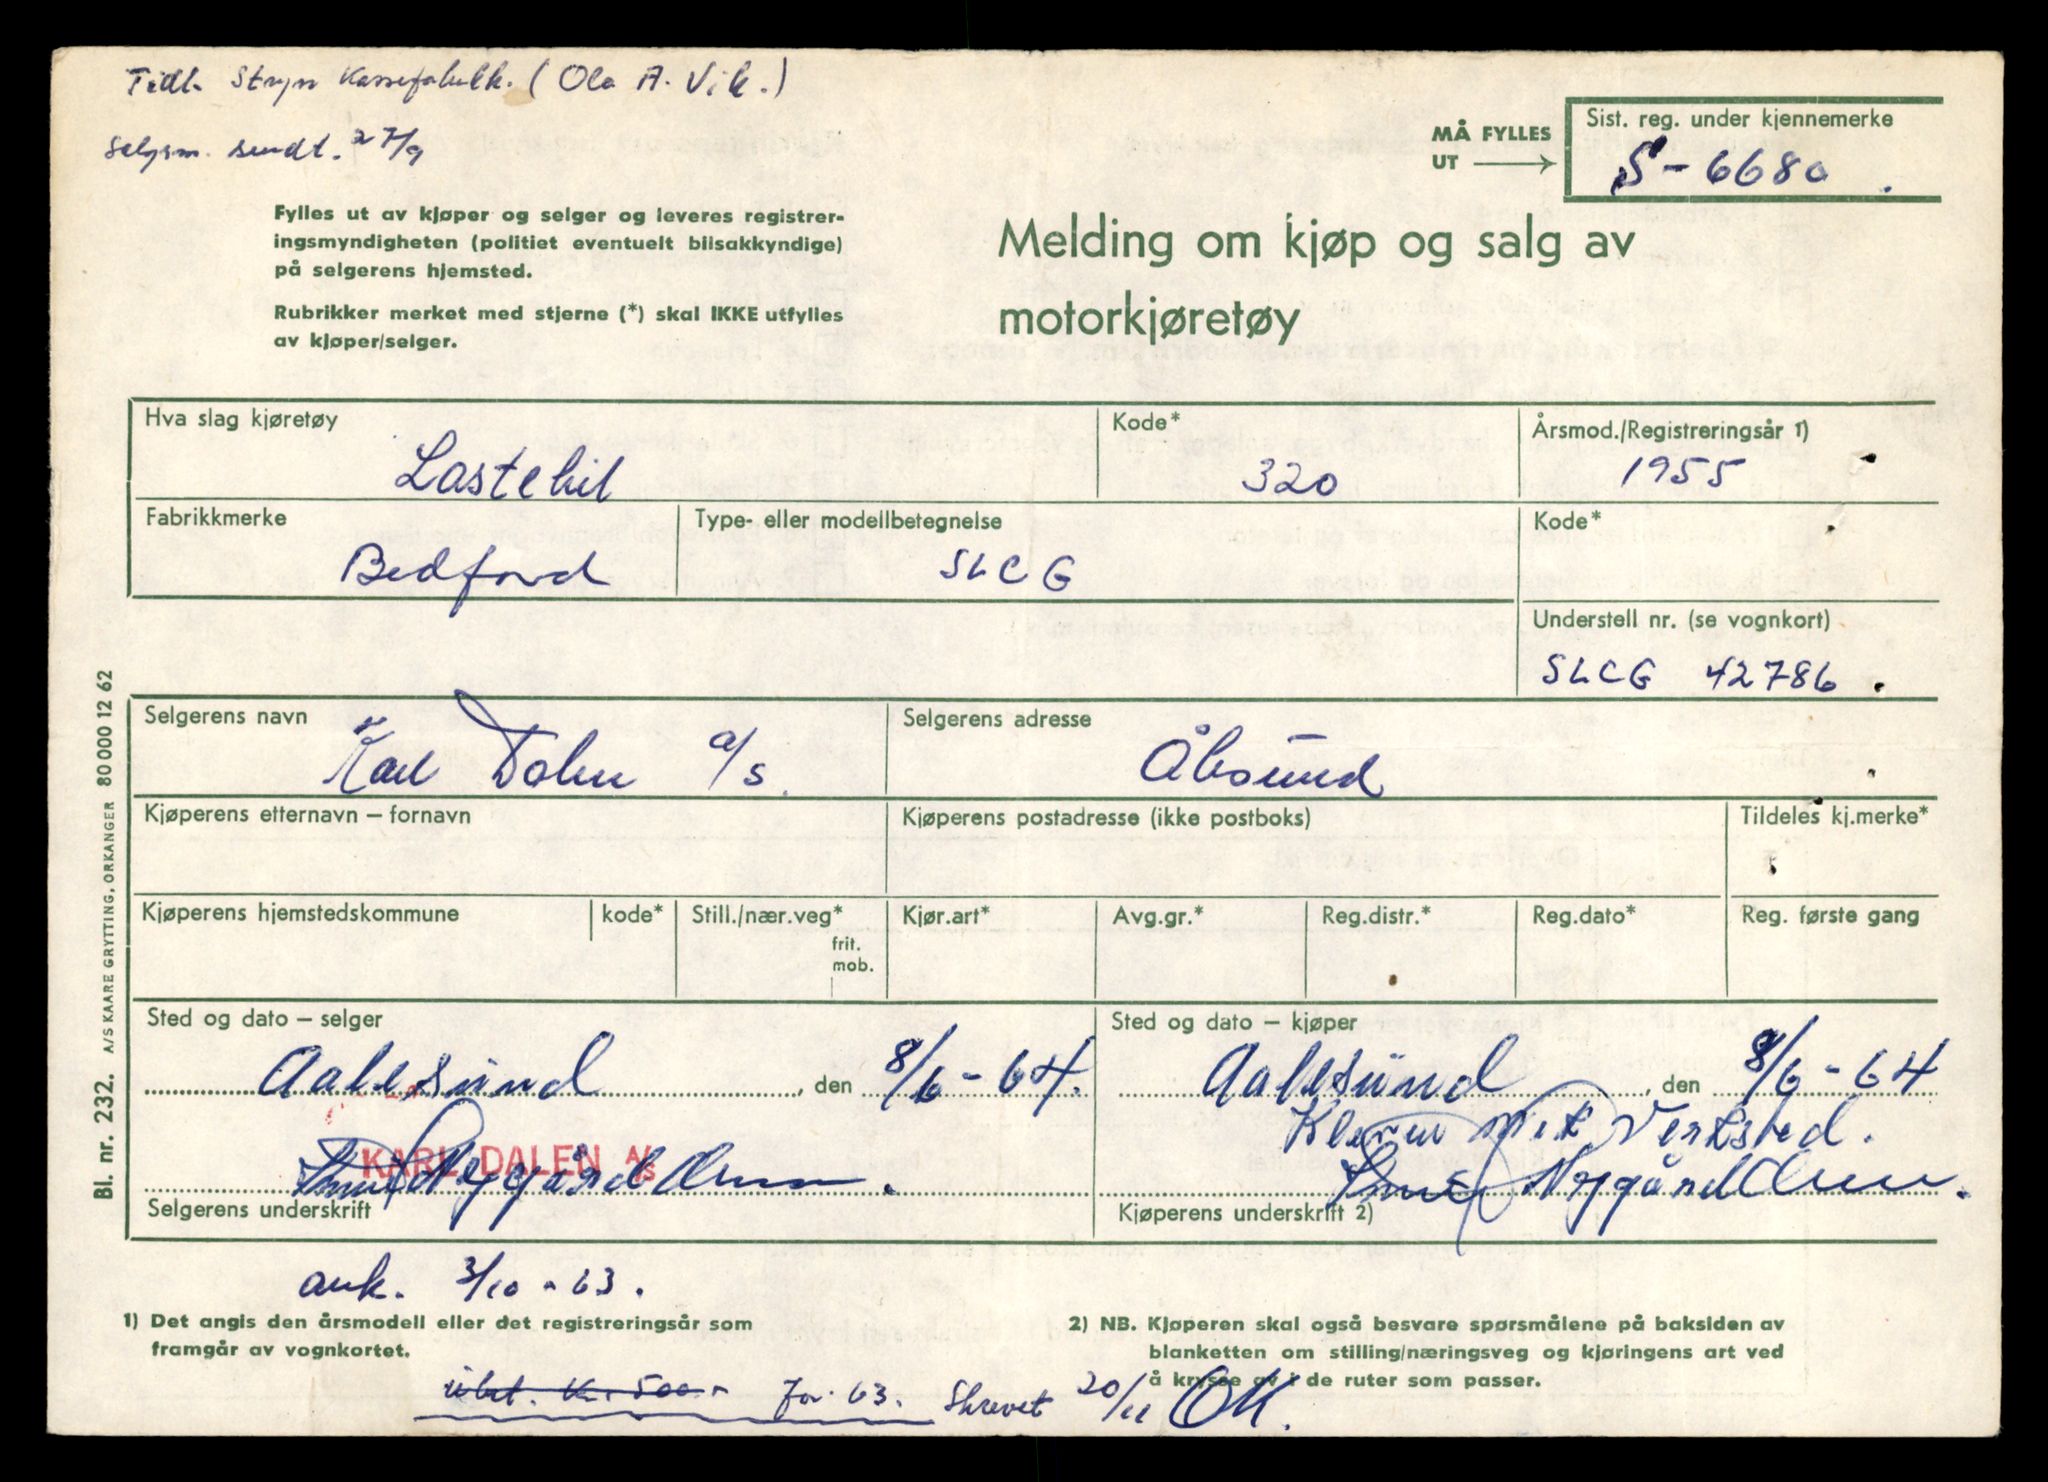 Tidl. Stryn Kassefabrikk. (Ola A. Vik.)
Selgsm. sendt. 27/9
MÅ FYLLES
UT
Sist. reg. under kjennemerke
S-6680
Fylles ut av kjøper og selger og leveres registrer-
ingsmyndigheten (politiet eventuelt bilsakkyndige)
på selgerens hjemsted.
Rubrikker merket med stjerne (*) skal IKKE utfylles
av kjøper/selger.
Melding om kjøp og salg av
motorkjøretøy
Hva slag kjøretøy
Lastebil
Kode*
320
Årsmod./Registreringsår 1)
1955
Fabrikkmerke
Bedford
Type- eller modellbetegnelse
SLCG
Kode*
Understell nr. (se vognkort)
SLCG 42786
Selgerens navn
Karl Dalen a/s.
Selgerens adresse
Ålesund
Kjøperens etternavn – fornavn
Kjøperens postadresse (ikke postboks)
Tildeles kj.merke*
Kjøperens hjemstedskommune
kode*
Still./nær.veg*
frit.
mob.
Kjør.art*
Avg.gr.*
Reg.distr.*
Reg.dato*
Reg. første gang
Sted og dato – selger
Aalesund, den 8/6-64.
KARL DALEN A/S
Knut Nygård Olsen.
Selgerens underskrift
Sted og dato – kjøper
Aalesund, den 8/6-64
Kleven Mek Verksted.
Knut Nygård Olsen.
Kjøperens underskrift 2)
ank. 3/10-63.
1) Det angis den årsmodell eller det registreringsår som
framgår av vognkortet.
2) NB. Kjøperen skal også besvare spørsmålene på baksiden av
blanketten om stilling/næringsveg og kjøringens art ved
å krysse av i de ruter som passer.
Kr. 500.- for 63. Skrevet 20/11 OK.
Bl. nr. 232. A/S KAARE GRYTTING, ORKANGER 80 000 12 62